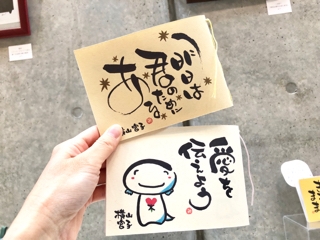 明日は
君のために
ある
横山宮子
愛を
伝えよう
横山
宮子